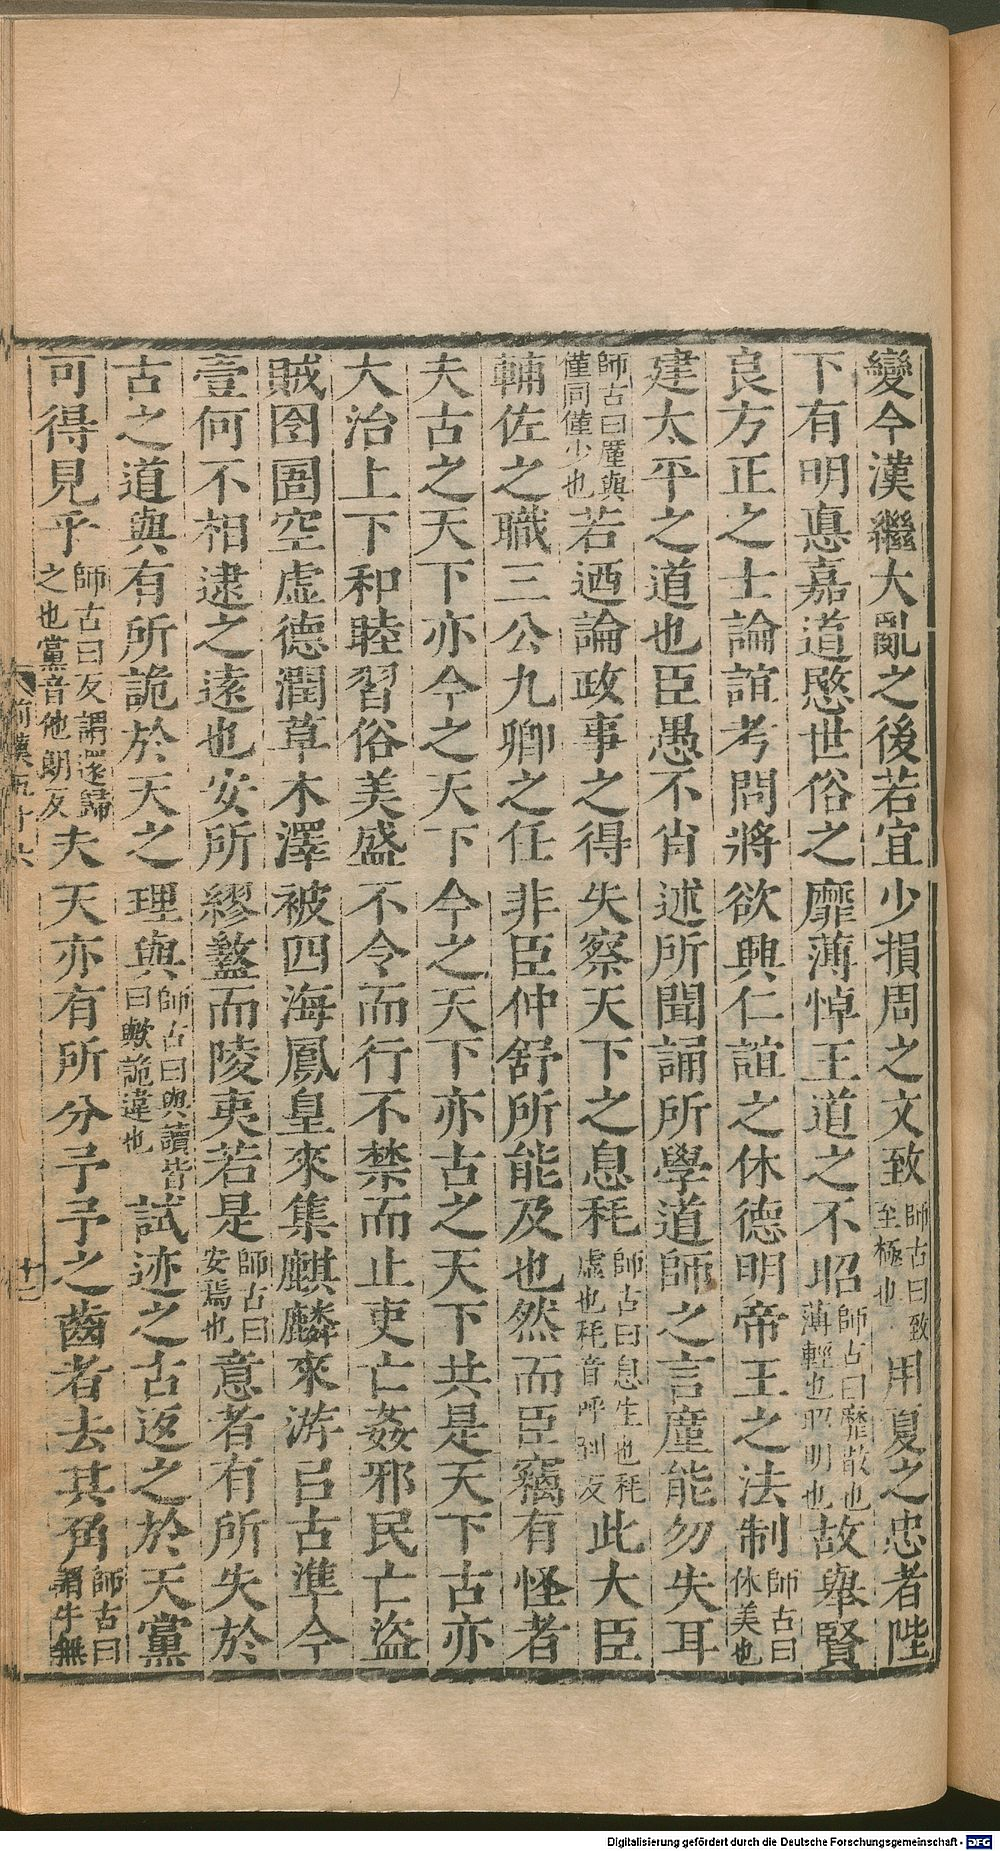 變今漢繼大亂之後若宜少損周之文致師古曰致至極也用夏之忠者陛
下有明悳嘉道愍世俗之靡薄悼王道之不昭師古曰靡散也薄輕也昭明也故舉賢
良方正之士論誼考問將欲興仁誼之休德明帝王之法制師古曰休美也
建太平之道也臣愚不肖述所聞誦所學道師之言廑能勿失耳
師古曰廑與僅同僅少也若迺論政事之得失察天下之息耗師古曰息生也耗虛也耗音呼到反此大臣
輔佐之職三公九卿之任非臣仲舒所能及也然而臣竊有怪者
夫古之天下亦今之天下今之天下亦古之天下共是天下古亦
大治上下和睦習俗美盛不令而行不禁而止吏亡姦邪民亡盜
賊囹圄空虛德潤草木澤被四海鳳皇來集麒麟來游㠯古準今
壹何不相逮之遠也安所繆盭而陵夷若是師古曰安焉也意者有所失於
古之道與有所詭於天之理與師古曰與讀皆曰歟詭違也試迹之古返之於天黨
可得見乎師古曰反謂還歸之也黨音他朗反夫天亦有所分予予之齒者去其角師古曰謂牛無
前漢五十六
十三
Digitalisierung gefördert durch die Deutsche Forschungsgemeinschaft - DFG